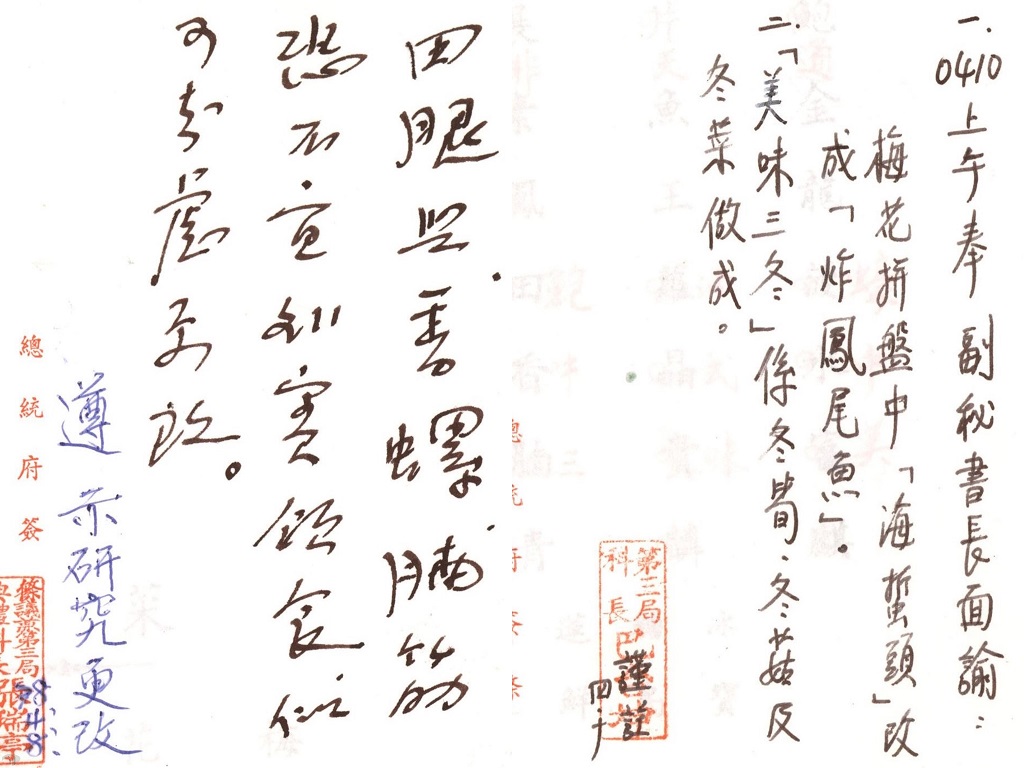 一.
0410上午奉 副秘書長面諭：
梅花拼盤中「海蜇頭」改
成「炸鳳尾魚」。
二.「美味三冬」係冬筍、冬菇及
冬菜做成。
第三局
科長
謹註
四、十
田腿與香螺脯筋
恐不宜外賓飲食似
可考慮更改。
遵示研究更改
總統府簽
第三局
張瑞亭
58.4.8.